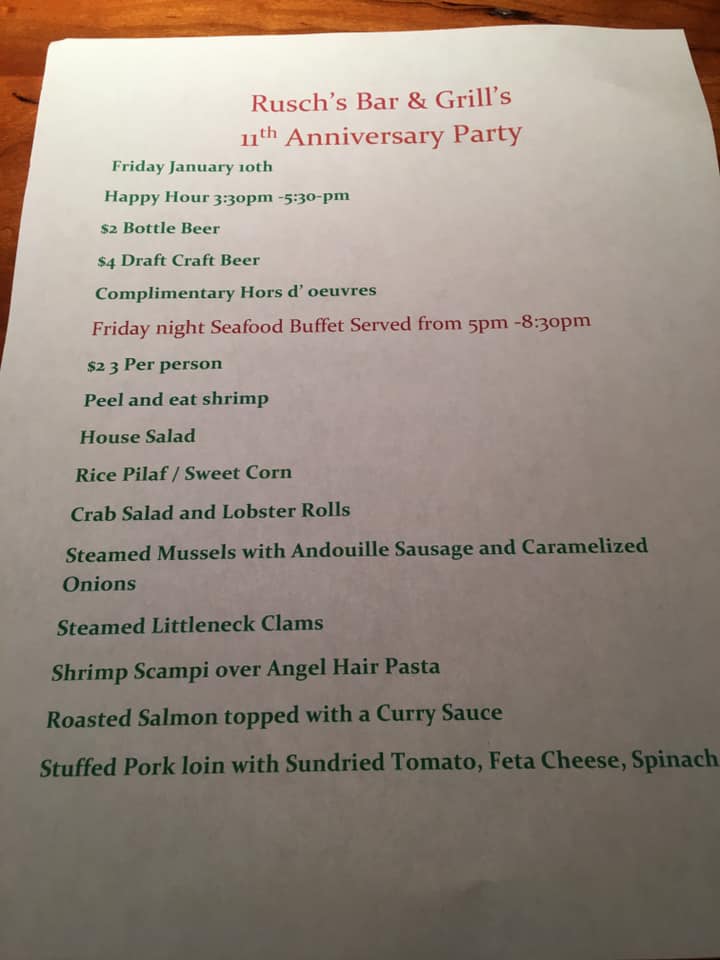 Rusch's Bar & Grill's
11th Anniversary Party
Friday January 10th
Happy Hour 3:30pm -5:30-pm
$2 Bottle Beer
$4 Draft Craft Beer
Complimentary Hors d' oeuvres
Friday night Seafood Buffet Served from 5pm -8:30pm
$2 3 Per person
Peel and eat shrimp
House Salad
Rice Pilaf / Sweet Corn
Crab Salad and Lobster Rolls
Steamed Mussels with Andouille Sausage and Caramelized
Onions
Steamed Littleneck Clams
Shrimp Scampi over Angel Hair Pasta
Roasted Salmon topped with a Curry Sauce
Stuffed Pork loin with Sundried Tomato, Feta Cheese, Spinach